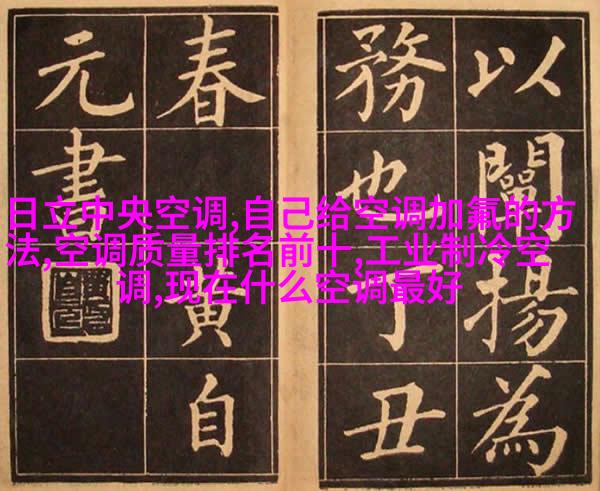 以闡揚為
務也丁丑
春黃自
元書
日立中央空调,自己给空调加氟的方
法,空调质量排名前十,工业制冷空
调,现在什么空调最好